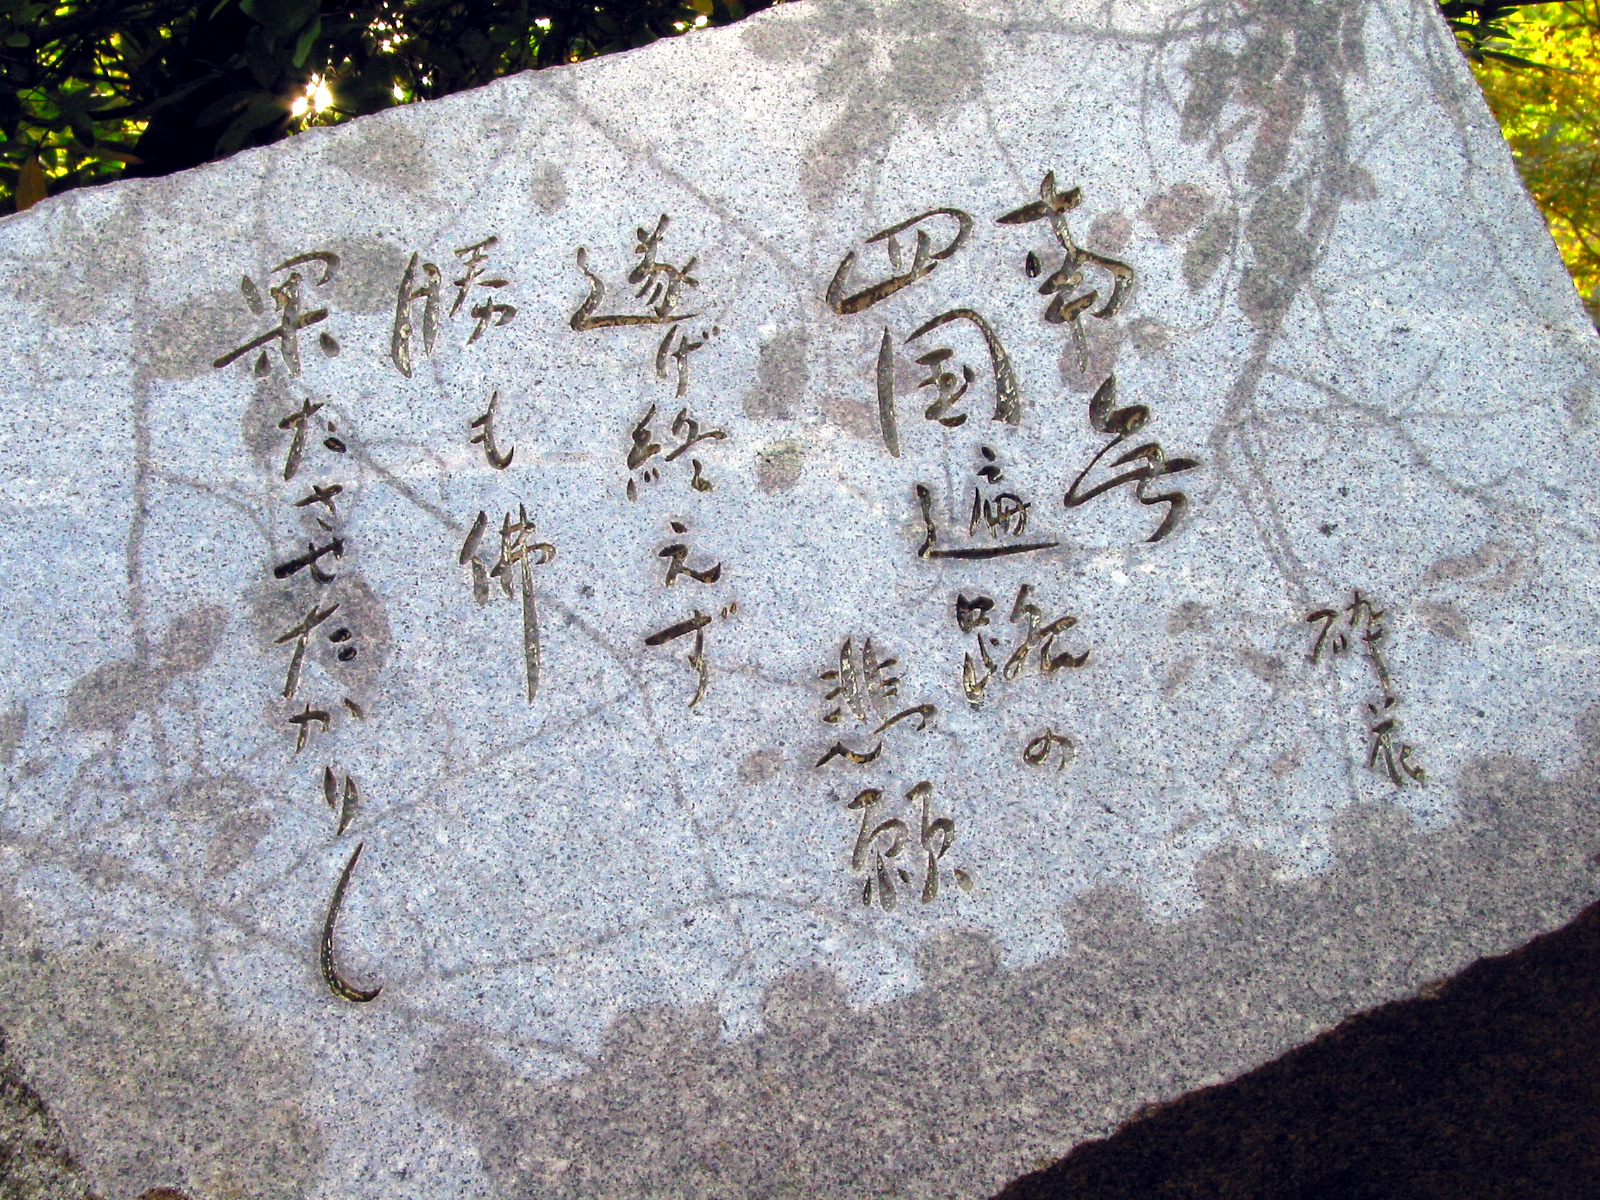 砕花
南無
四国遍路の
悲願
遂げ終えず
勝も佛
果たさせたかりし